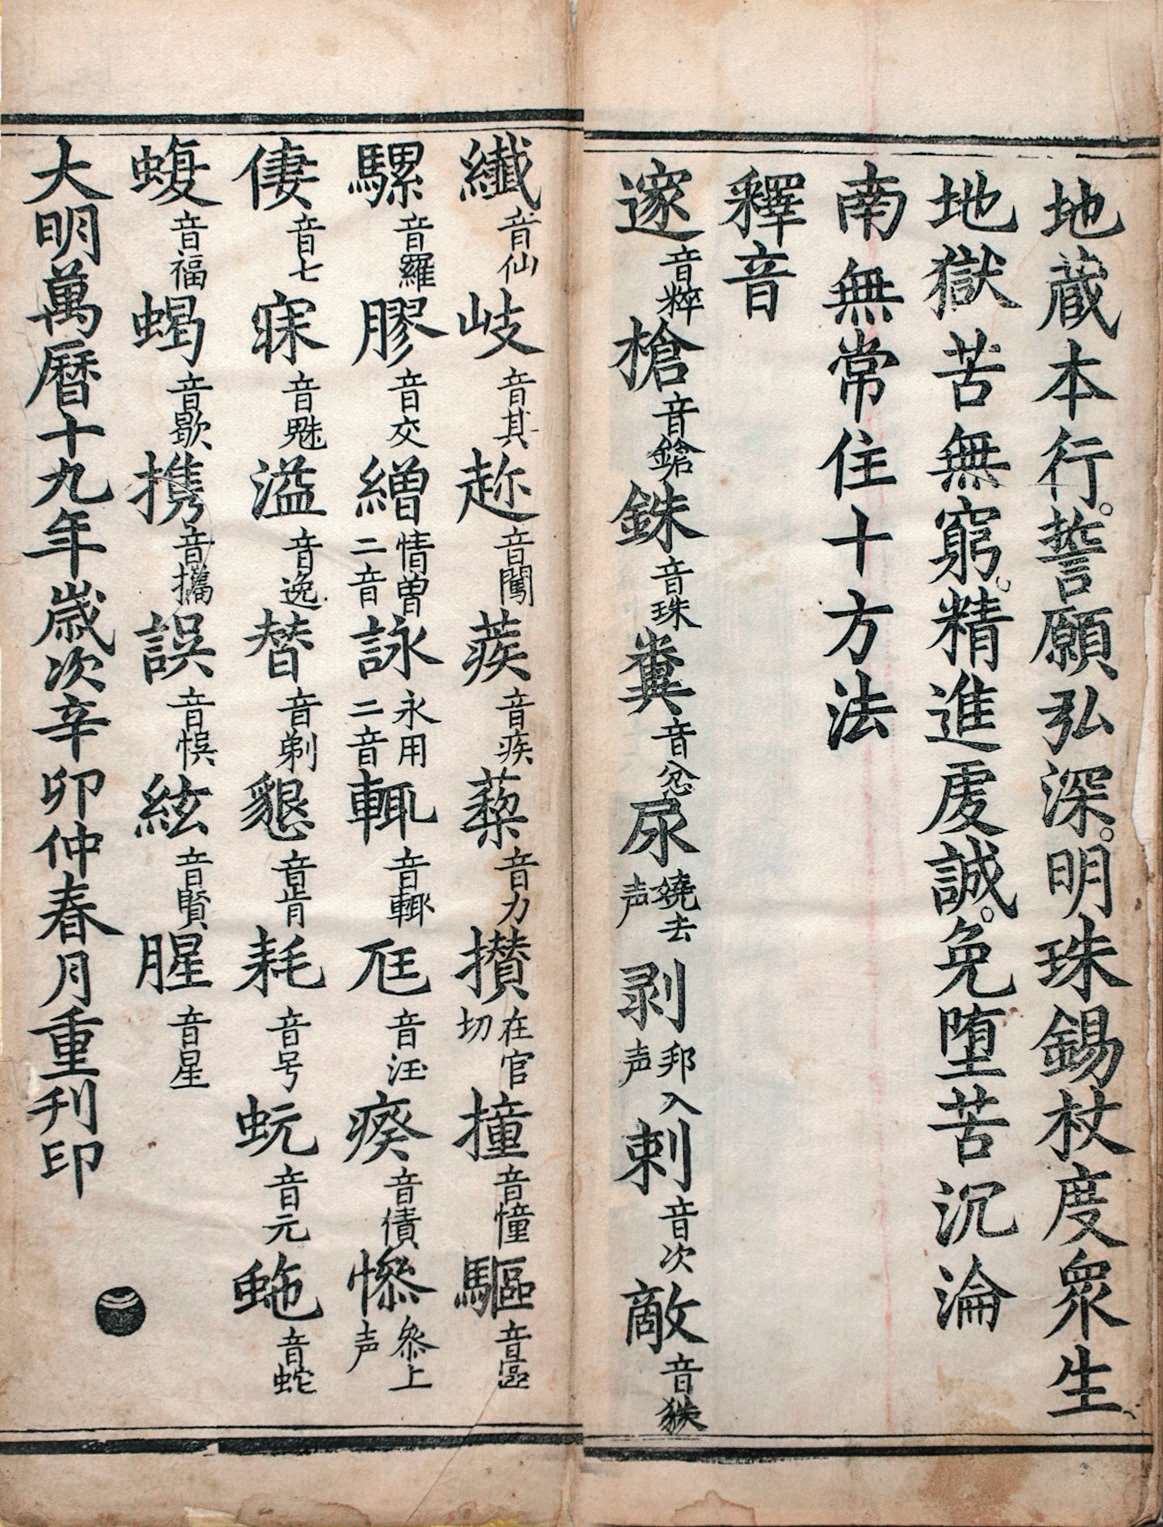 地藏本行。誓願弘深。明珠錫杖度眾生
地獄苦無窮。精進虔誠。免堕苦沉淪
南無常住十方法
釋音
邃音粹槍音鎗銖音珠糞音忿尿嬈去声剥邦入声刺音次敵音狄
纖音仙岐音其趂音闖蒺音疾蔾音力攅在官切撞音憧驅音區
騾音羅膠音交繒情曽二音詠永用二音輙音輒尫音汪瘵音債慘叅上声
悽音七寐音魅溢音逸替音剃懇音肯耗音号蚖音元虵音蛇
蝮音福蝎音歇携音攜誤音悞絃音賢腥音星
大明萬曆十九年歲次辛卯仲春月重刊印